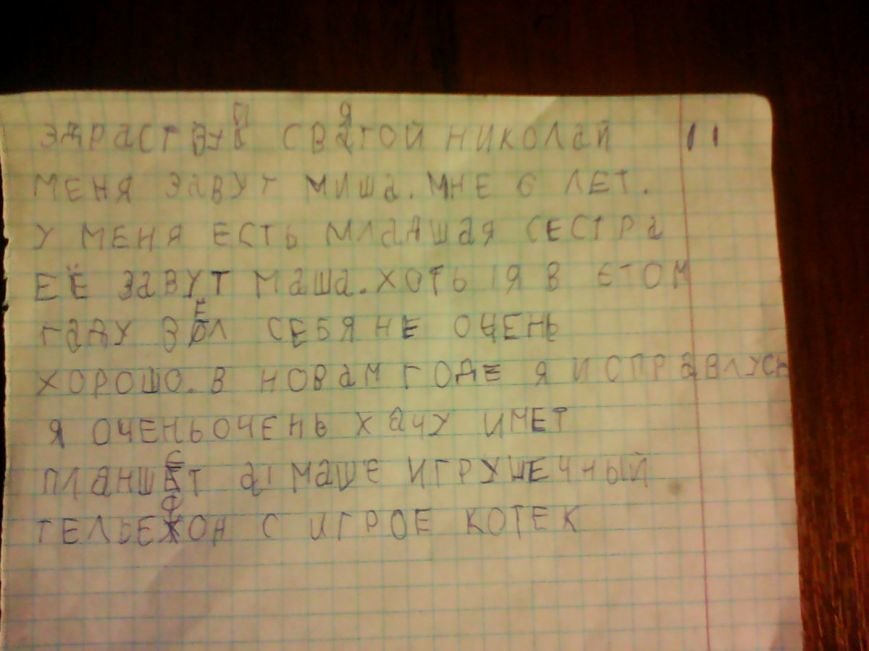 ЗДРАСТВУЙ СВЯТОЙ НИКОЛАЙ !!
МЕНЯ ЗАВУТ МИША. МНЕ 6 ЛЕТ.
У МЕНЯ ЕСТЬ МЛАДШАЯ СЕСТРА
ЕЁ ЗАВУТ МАША. ХОТЬ Я В ЕТОМ
ГАДУ ВЕЛ СЕБЯ НЕ ОЧЕНЬ
ХОРОШО. В НОВАМ ГОДЕ Я ИСПРАВЛУСЬ
Я ОЧЕНЬОЧЕНЬ ХАЧУ ИМЕТ
ПЛАНШЕТ А МАШЕ ИГРУШЕЧНЫЙ
ТЕЛЬЕФОН С ИГРОЕ КОТЕК